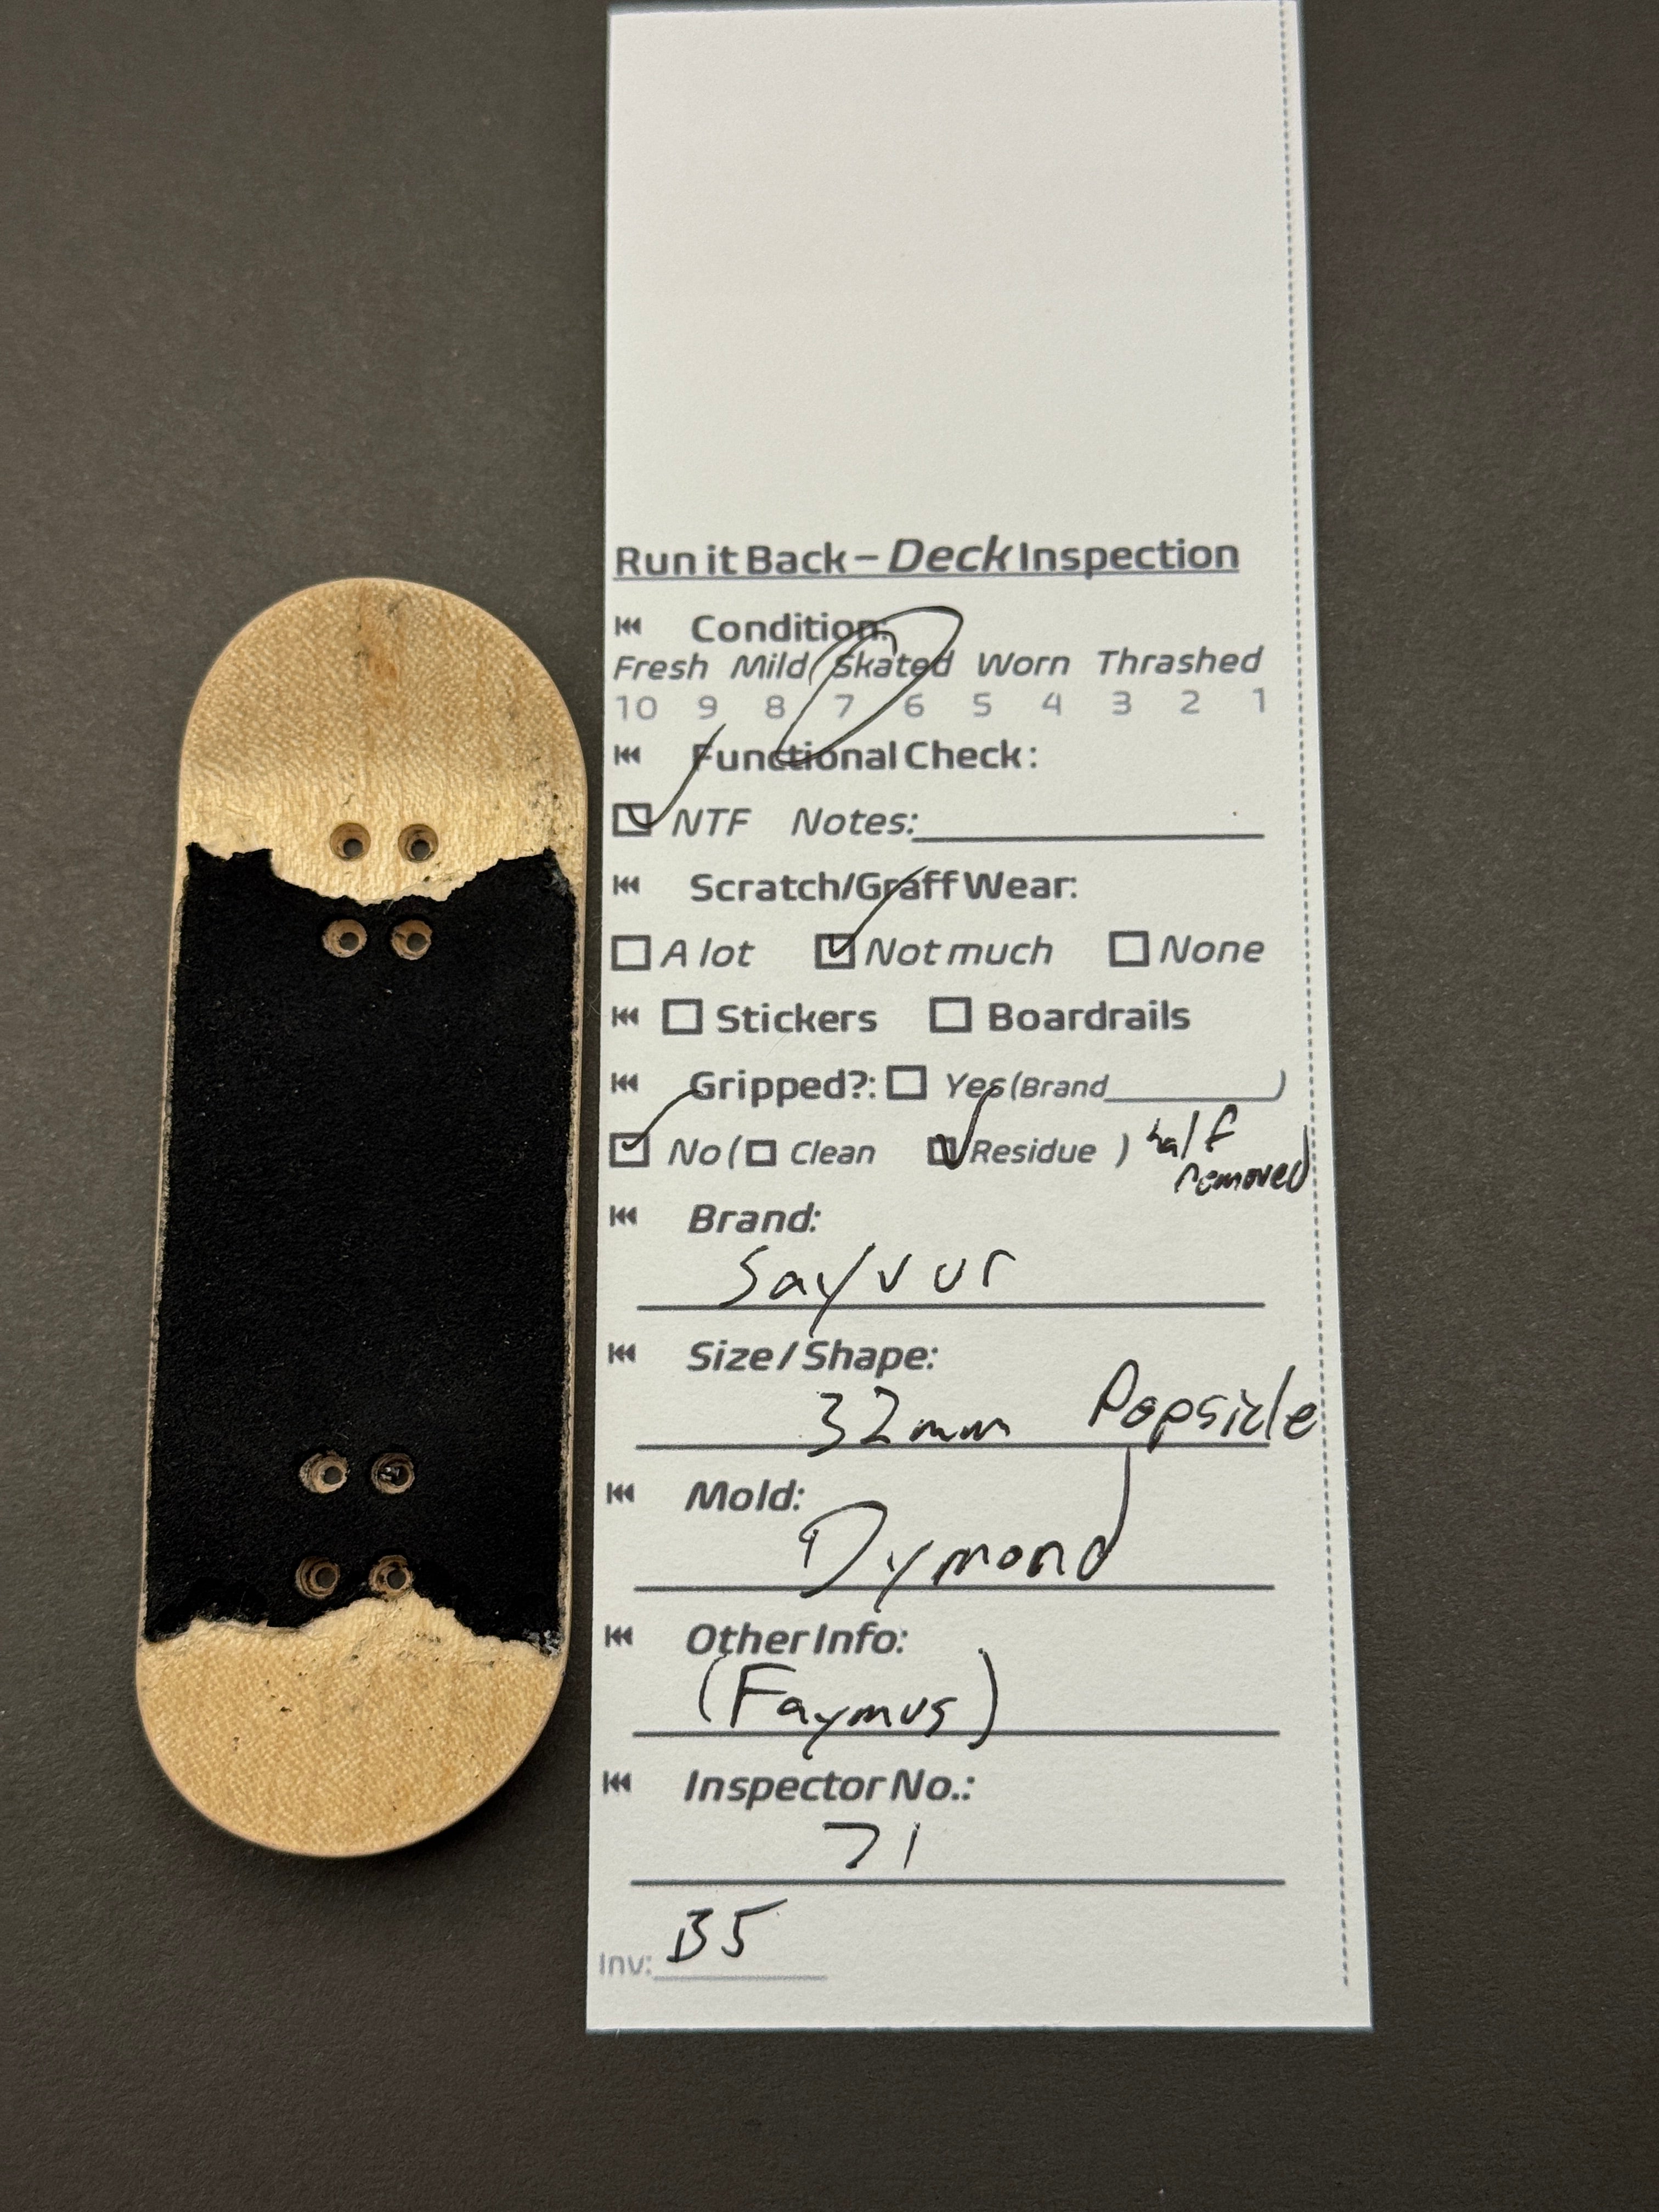 Run it Back – Deck Inspection
Condition:
Fresh Mild Skated Worn Thrashed
10 9 8 7 6 5 4 3 2 1
Functional Check:
NTF Notes:
Scratch/Graff Wear:
A lot Not much None
Stickers Boardrails
Gripped?: Yes (Brand )
No ( Clean Residue ) half
removed
Brand:
Sayvur
Size / Shape:
32mm Popsicle
Mold:
Dymond
Other Info:
(Faymus)
Inspector No.:
71
Inv: B5